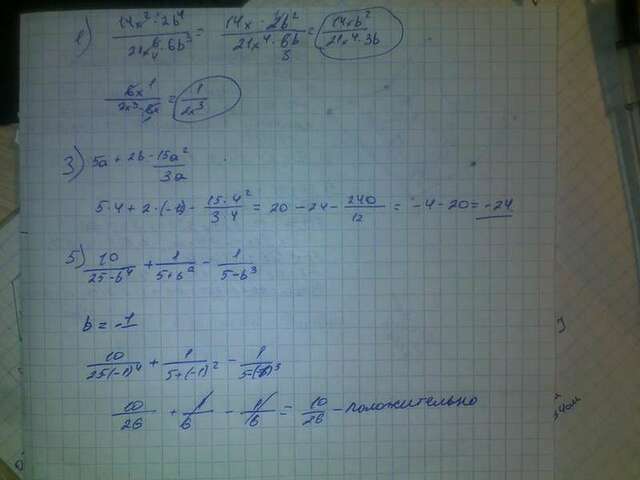 1) (14x²·2b⁴)/(21x⁶·6b³) = (14x·2b²)/(21x⁴·6b) = (14xb²)/(21x⁴·3b)
(6x)/(2x³·6x) = 1/(2x³)
3) 5a + 2b - 15a²/3a
5·4 + 2·(-12) - (15·4²)/(3·4) = 20 - 24 - 240/12 = -4 - 20 = -24
5) 10/(25-b⁴) + 1/(5+b²) - 1/(5-b³)
b = -1
10/(25(-1)⁴) + 1/(5+(-1)²) - 1/(5-(-1))³
10/26 + 1/6 - 1/6 = 10/26 - положительно